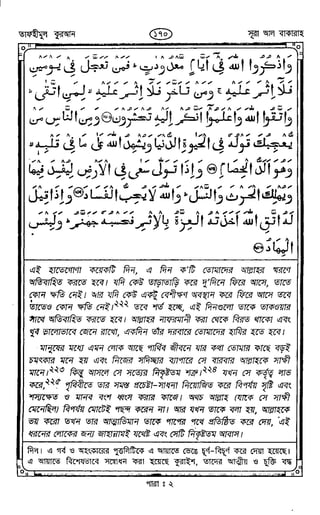 তাফহীমুল কুরআন ১৭০ সূরা আল বাকারাহ
وَاذْكُرُوا اللهَ فِىْ اَيَّامٍ مَّعْدُوْدٰتٍ ؕ فَمَنْ تَعَجَّلَ فِىْ يَوْمَيْنِ
فَلَاۤ اِثْمَ عَلَيْهِ ۚ وَمَنْ تَاَخَّرَ فَلَاۤ اِثْمَ عَلَيْهِ ۙ لِمَنِ اتَّقٰى ؕ
وَاتَّقُوا اللهَ وَاعْلَمُوْۤا اَنَّكُمْ اِلَيْهِ تُحْشَرُوْنَ ۞ وَمِنَ النَّاسِ مَنْ
يُّعْجِبُكَ قَوْلُهٗ فِى الْحَيٰوةِ الدُّنْيَا وَيُشْهِدُ اللهَ عَلٰى مَا فِىْ قَلْبِهٖ ۙ
وَهُوَ اَلَدُّ الْخِصَامِ ۞ وَاِذَا تَوَلّٰى سَعٰى فِى الْاَرْضِ لِيُفْسِدَ فِيْهَا
وَيُهْلِكَ الْحَرْثَ وَالنَّسْلَ ؕ وَاللهُ لَا يُحِبُّ الْفَسَادَ ۞ وَاِذَا قِيْلَ
لَهُ اتَّقِ اللهَ اَخَذَتْهُ الْعِزَّةُ بِالْاِثْمِ فَحَسْبُهٗ جَهَنَّمُ ؕ وَلَبِئْسَ
الْمِهَادُ ۞
এই হাতেগোণা কয়েকটি দিন, এ দিন ক'টি তোমাদের আল্লাহর স্মরণে
অতিবাহিত করতে হবে। যদি কেউ তাড়াতাড়ি করে দু'দিনে ফিরে আসে, তাতে
কোন ক্ষতি নেই। আর যদি কেউ একটু বেশীক্ষণ অবস্থান করে ফিরে আসে তবে
তাতেও কোন ক্ষতি নেই।২২২ তবে শর্ত হচ্ছে, এই দিনগুলো তাকে তাকওয়ার
সাথে অতিবাহিত করতে হবে। আল্লাহর নাফরমানী করা থেকে বিরত থাকো এবং
খুব ভালোভাবে জেনে রাখো, একদিন তাঁর দরবারে তোমাদের হাযির হতে হবে।
মানুষের মধ্যে এমন লোক আছে পার্থিব জীবনে যার কথা তোমার কাছে বড়ই
চমৎকার মনে হয় এবং নিজের সদিচ্ছার ব্যাপারে সে বারবার আল্লাহকে সাক্ষী
মানে।২২৩ কিন্তু আসলে সে সত্যের নিকৃষ্টতম শত্রু।২২৪ যখন সে কর্তৃত্ব লাভ
করে,২২৫ পৃথিবীতে তার সমস্ত প্রচেষ্টা-সাধনা নিয়োজিত করে বিপর্যয় সৃষ্টি এবং
শস্যক্ষেত ও মানব বংশ ধ্বংস করার কাজে। অথচ আল্লাহ (যাকে সে সাক্ষী
মেনেছিল) বিপর্যয় মোটেই পছন্দ করেন না। আর যখন তাকে বলা হয়, আল্লাহকে
ভয় করো তখন তার আত্মাভিমান তাকে পাপের পথে প্রতিষ্ঠিত করে দেয়, এই
ধরনের লোকের জন্য জাহান্নামই যথেষ্ট এবং সেটি নিকৃষ্টতম আবাস।
দিন। এ গর্ব ও অহংকারের পুত্তলিটিকে এ আয়াতে ভেঙে চূর্ণ-বিচূর্ণ করে দেয়া হয়েছে।
এ আয়াতে বিশেষভাবে সম্বোধন করা হয়েছে কুরাইশ, তাদের আত্মীয় ও চুক্তি বদ্ধ
পারা : ২